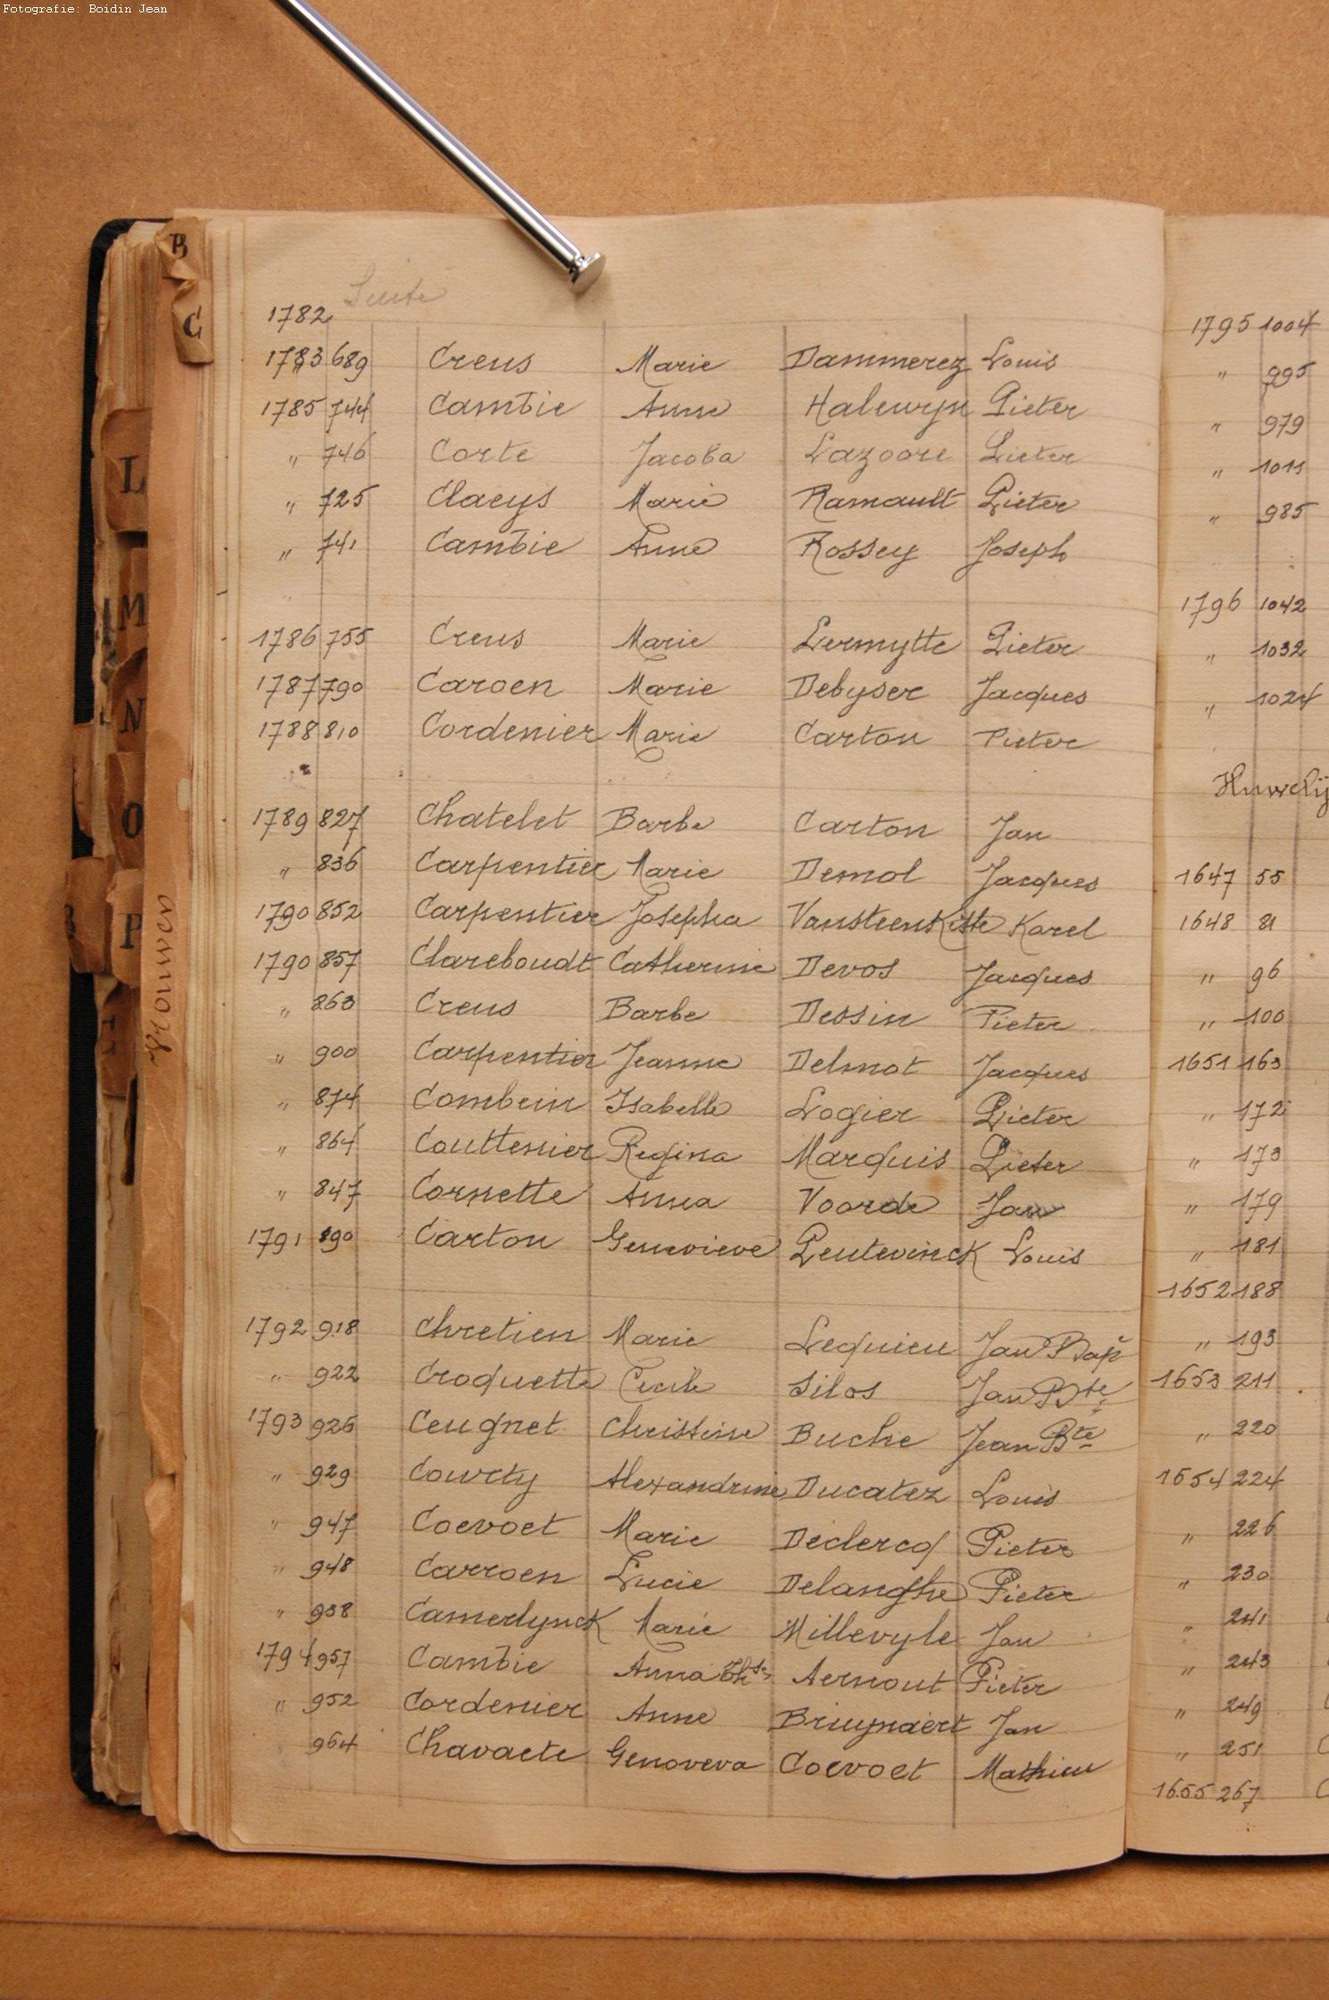 Fotografie: Boidin Jean
Suite
1782
1783 689 Creus Marie Dammerez Louis
1785 744 Cambie Anne Halewyn Pieter
" 746 Corte Jacoba Lazoore Pieter
" 725 Claeys Marie Ramault Pieter
" 741 Cambie Anne Rossey Joseph
1786 755 Creus Marie Lermytte Pieter
1787 790 Caroen Marie Debyser Jacques
1788 810 Cordenier Marie Carton Pieter
1789 827 Chatelet Barbe Carton Jan
" 836 Carpentier Marie Demol Jacques
1790 852 Carpentier Josepha Vansteenkiste Karel
1790 857 Clareboudt Catherine Devos Jacques
" 863 Creus Barbe Dessin Pieter
" 900 Carpentier Jeanne Delmot Jacques
" 874 Combein Isabelle Logier Pieter
" 864 Couttenier Regina Marquis Pieter
" 847 Cornette Anna Voorde Jan
1791 890 Carton Genevieve Peutevinck Louis
1792 918 Chretien Marie Lequieu Jan Bap
" 922 Croquette Cecile Silos Jan Bte
1793 926 Ceugnet Christine Buche Jean Bte
" 929 Courty Alexandrine Ducatez Louis
" 947 Coevoet Marie Declercq Pieter
" 948 Carroen Lucie Delanghe Pieter
" 938 Camerlynck Marie Millevyle Jan
1794 957 Cambie Anna Ths Aernout Pieter
" 952 Cordenier Anne Bruynaert Jan
964 Chavaete Genoveva Coevoet Mathieu
1795 1004
" 995
" 979
" 1011
" 985
1796 1042
" 1032
" 1024
Huwelij
1647 55
1648 81
" 96
" 100
1651 163
" 172
" 173
" 179
" 181
1652 188
" 193
1653 211
" 220
1654 224
" 226
" 230
" 241
" 243
" 249
" 251
1655 267
B
C
L
M
N
O
P
Vrouwen